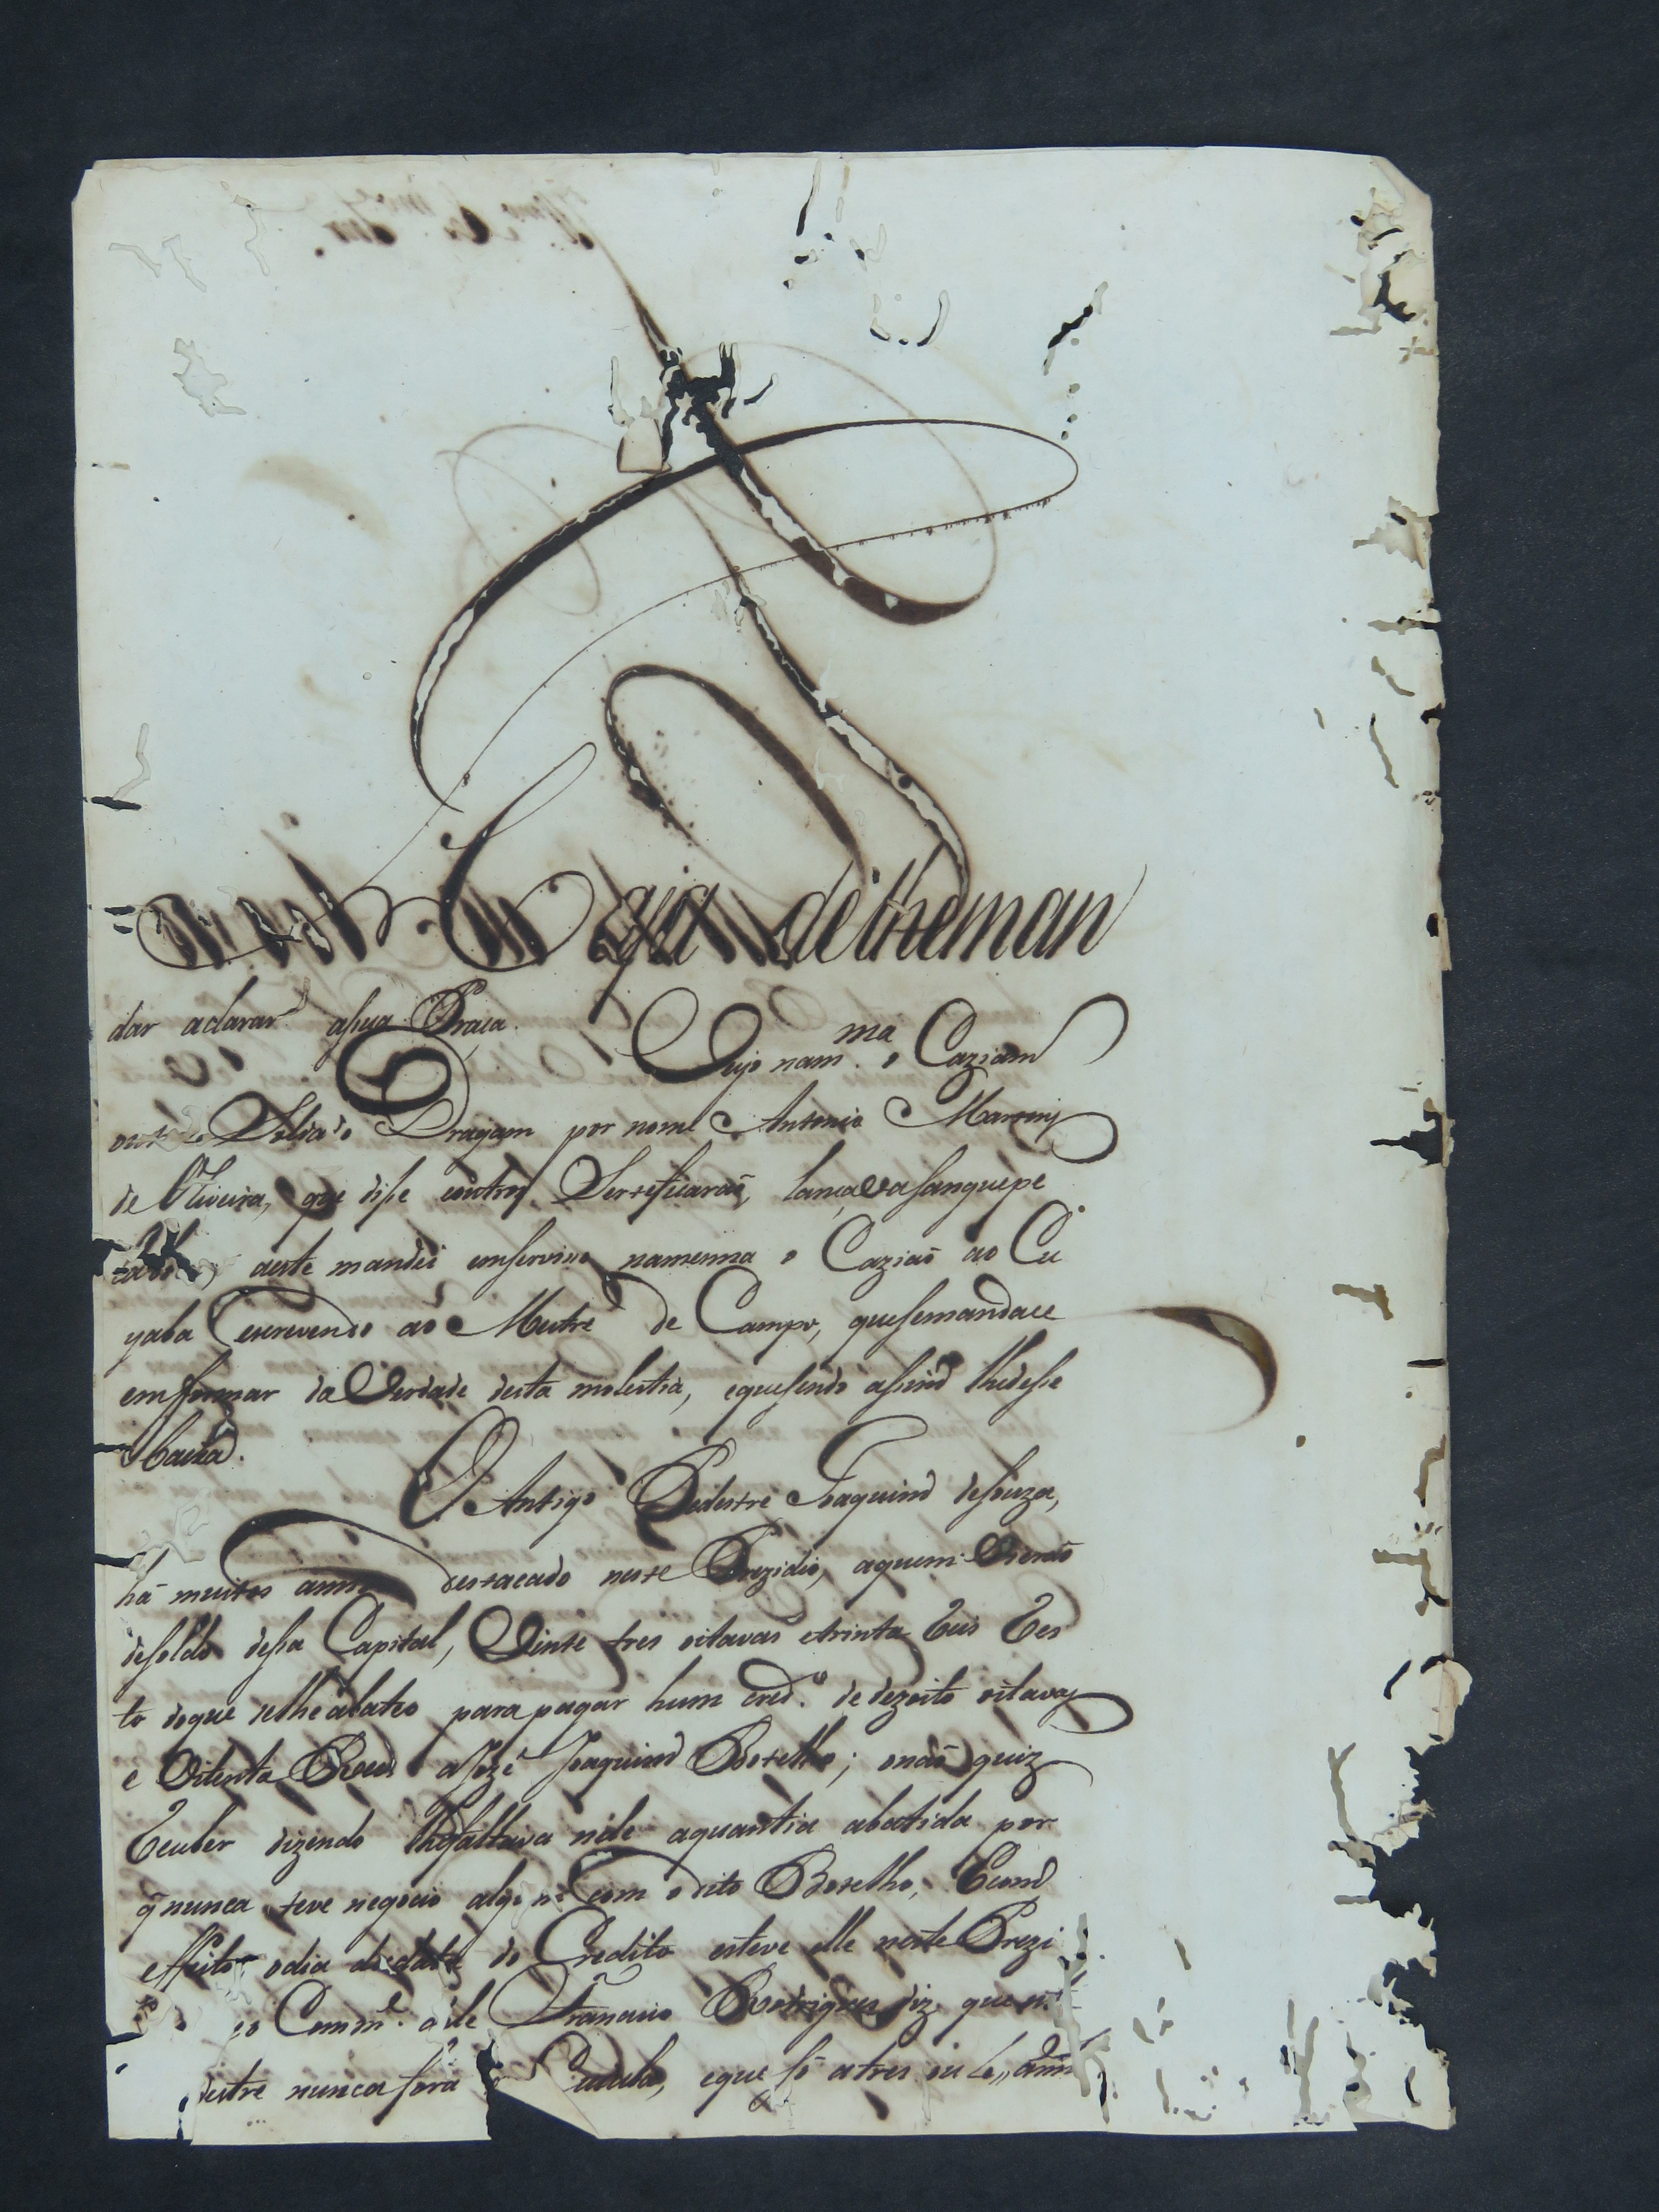 seja de lhe man
dar aclarar asua Praça.
Cujo nam ma o Caziam
outro Soldado Dragam por nome Antonio Martins
de Oliveira, que dise e outros Serteficaraõ, lançava sanguepe
aeste mandei emserviso namesma o Caziaõ ao Cu
yaba escrevendo ao Mestre de Campo, quesemandace
emformar da Verdade desta molestia, equesendo asim lhedese
baixa.
O Antigo Pedestre Joaquim desouza,
há muitos annos destacado neste Prezidio, aquem Vieraõ
desoldo desa Capital, Vinte tres oitavas etrinta Reis Res
to doque selheabateo para pagar hum cred.º de dezoito oitavas
e Oitenta Reis aJozé Joaquim Botelho; enaõ quiz
Reseber dizendo lhefaltava nele aquantia abatida por
q̃ nunca teve negocio algum com odito Botelho, Ecom
effeito odia dadata do Credito esteve elle neste Prezi
Comm.e dele Francisco Rodrigues diz que
destre nunca fora eque só atres ou 4 ann